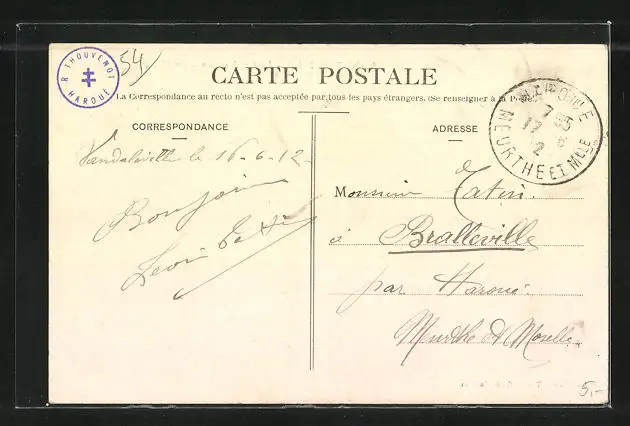 R. THOUVENOT
HAROUÉ
54
CARTE POSTALE
La Correspondance au recto n'est pas acceptée par tous les pays étrangers. (Se renseigner à la Poste)
CORRESPONDANCE
le 16-6-12-
Bonjour
Léon
ADRESSE
7 35
17 6
12
MEURTHE ET MLLE
Monsieur Tatin.
à Bralleville
par Haroué
Meurthe et Moselle.
5,-